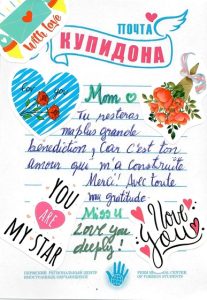 With love
ПОЧТА
КУПИДОНА
Mom
Tu resteras
ma plus grande
bénédiction, Car c'est ton
amour qui m'a construite
Merci! Avec toute
ma gratitude
Miss U
Love you
deeply!
YOU
ARE
MY STAR
I love
You
ПЕРМСКИЙ РЕГИОНАЛЬНЫЙ ЦЕНТР
ИНОСТРАННЫХ ОБУЧАЮЩИХСЯ
PERM REGIONAL CENTER
OF FOREIGN STUDENTS